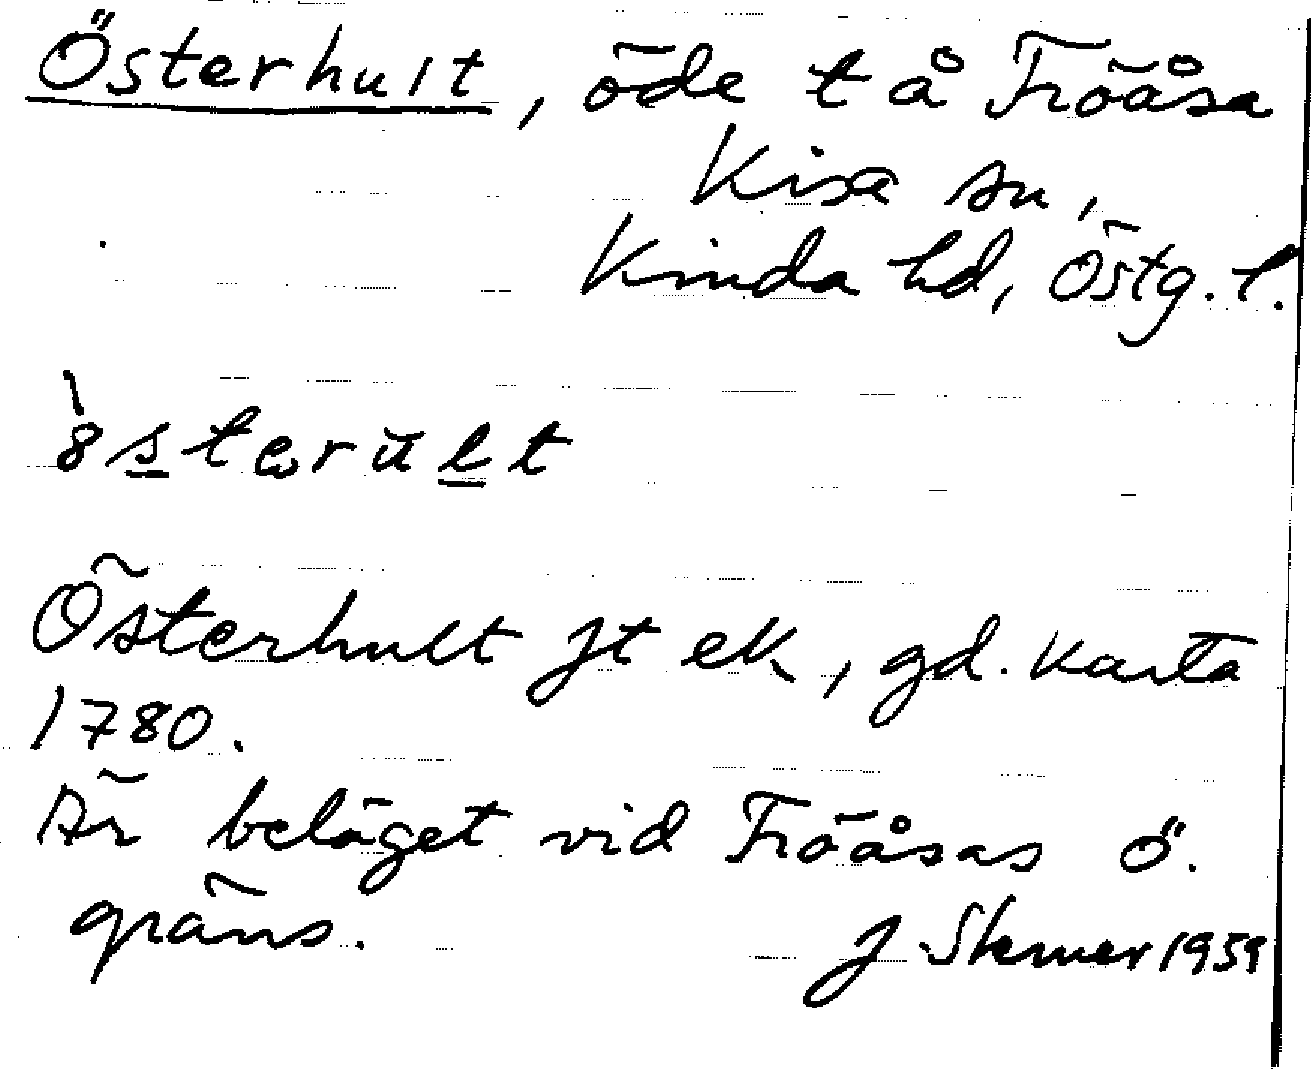 Österhult, öde t å Fröåsa
Kisa sn,
Kinda hd, Östg. l.
`österult
Österhult Jt ek, gd. Karta
1780.
Är beläget vid Fröåsas ö.
gräns.
J
1959